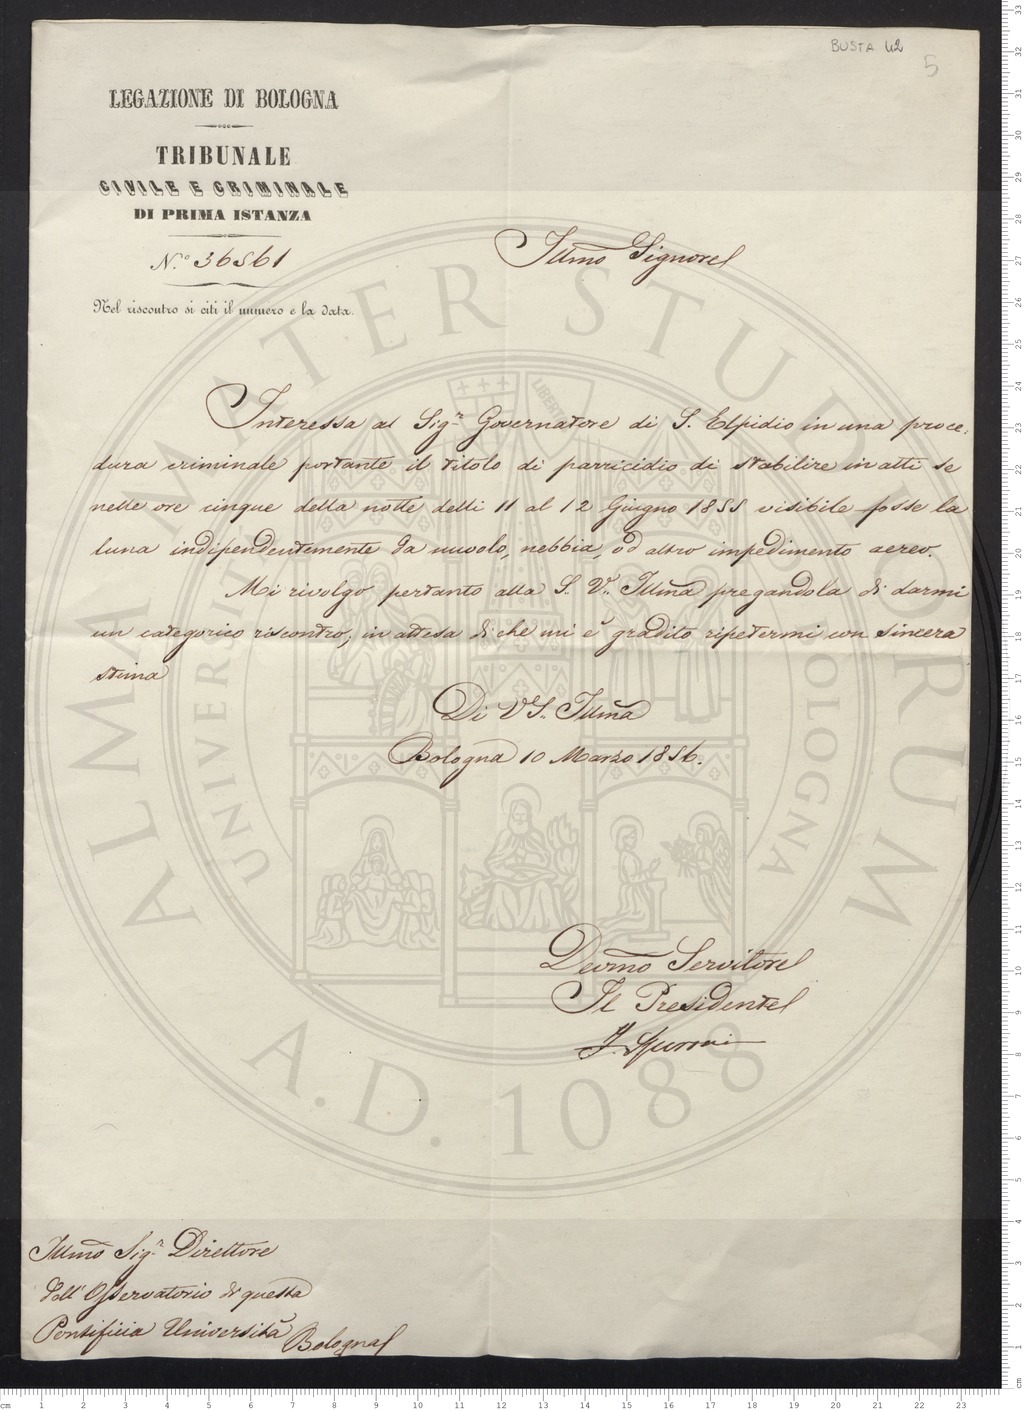 BUSTA 42
5
LEGAZIONE DI BOLOGNA
TRIBUNALE
CIVILE E CRIMINALE
DI PRIMA ISTANZA
N.º 36561
Nel riscontro si citi il numero e la data.
Illmo Signore
Interessa al Sigr. Governatore di S. Elpidio in una proce-
dura criminale portante il titolo di parricidio di stabilire in atti se
nelle ore cinque della notte delli 11 al 12 Giugno 1855 visibile fosse la
luna indipendentemente da nuvolo, nebbia, od altro impedimento aereo.
Mi rivolgo pertanto alla S. V. Illma pregandola di darmi
un categorico riscontro, in attesa di che mi è gradito ripetermi con sincera
stima
Di V S. Illma
Bologna 10 Marzo 1856.
Devmo Servitore
Il Presidente
Illmo Sigr. Direttore
dell' Osservatorio di questa
Pontificia Università
Bologna
ALMA MATER STUDIORUM
UNIVERSITÀ DI BOLOGNA
LIBERTAS
A.D. 1088
cm 1 2 3 4 5 6 7 8 9 10 11 12 13 14 15 16 17 18 19 20 21 22 23
cm 1 2 3 4 5 6 7 8 9 10 11 12 13 14 15 16 17 18 19 20 21 22 23 24 25 26 27 28 29 30 31 32 33